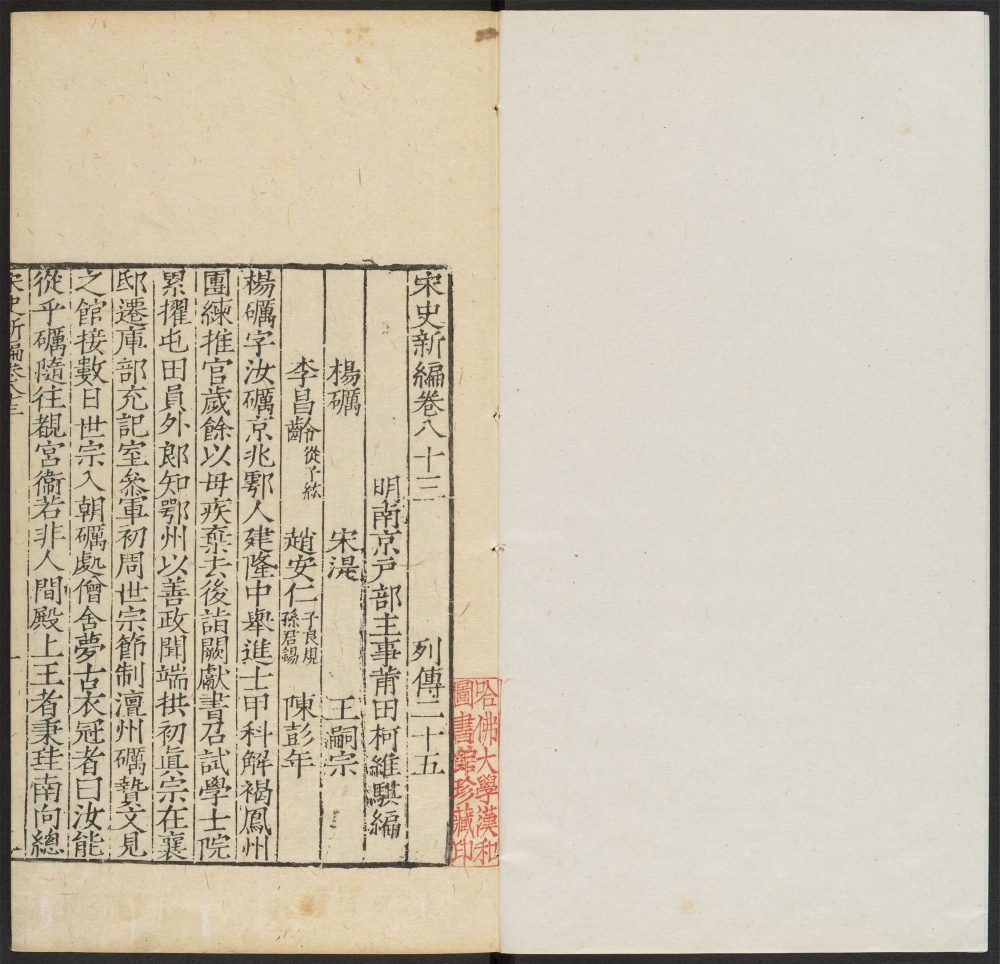 宋史新編卷八十三 列傳二十五
明南京戸部主事莆田柯維騏編
楊礪 宋湜 王嗣宗
李昌齡從子紘 趙安仁子良規孫君錫 陳彭年
楊礪字汝礪京兆鄠人建隆中舉進士甲科解褐鳳州
團練推官歲餘以母疾棄去後詣闕獻書召試學士院
累擢屯田員外郎知鄂州以善政聞端拱初眞宗在襄
邸遷庫部充記室叅軍初周世宗節制澶州礪贄文見
之館接數日世宗入朝礪處僧舍夢古衣冠者曰汝能
從乎礪隨往覩宮衞若非人間殿上王者秉珪南向總
宋史新編卷八十三 一
哈佛大學漢和
圖書館珍藏印